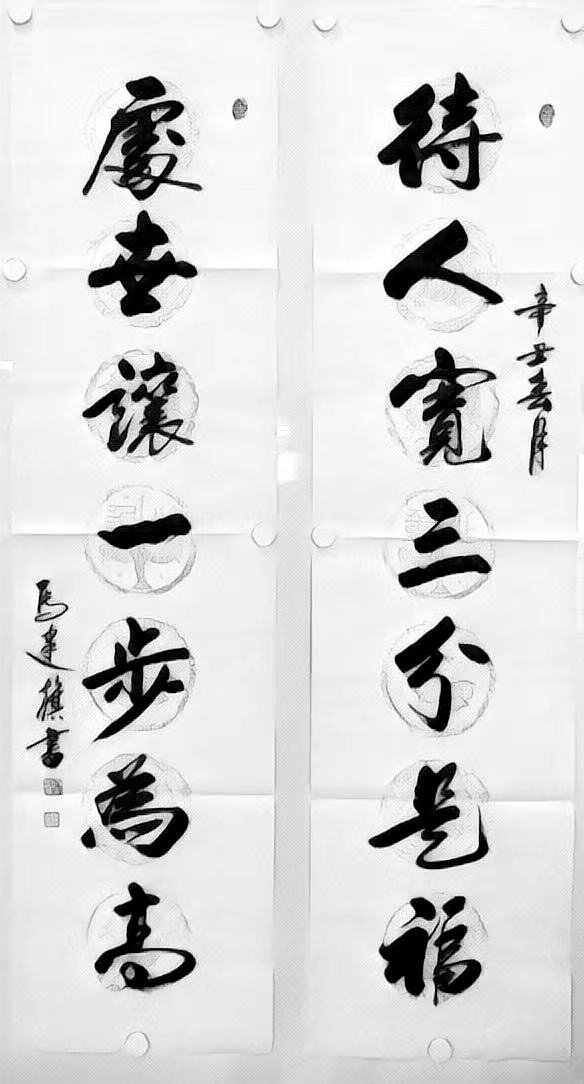 待人寬三分是福
辛丑春月
處世讓一步為高
馬建旗書